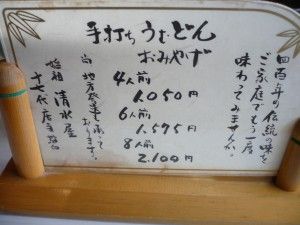 四百年の伝統の味を
ご家庭でもう一度
味わってみませんか。
手打ちうむどん
おみやげ
4人前
1.050円
6人前
1.575円
8人前
2.100円
当地方発送も承って
おります。
始祖 清水屋
十七代店主